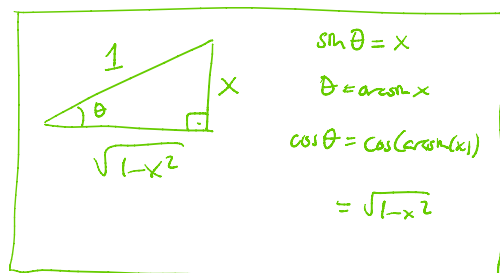 1
x
θ
√1-x²
sin θ = x
θ = arcsin x
cos θ = cos(arcsin(x))
= √1-x²